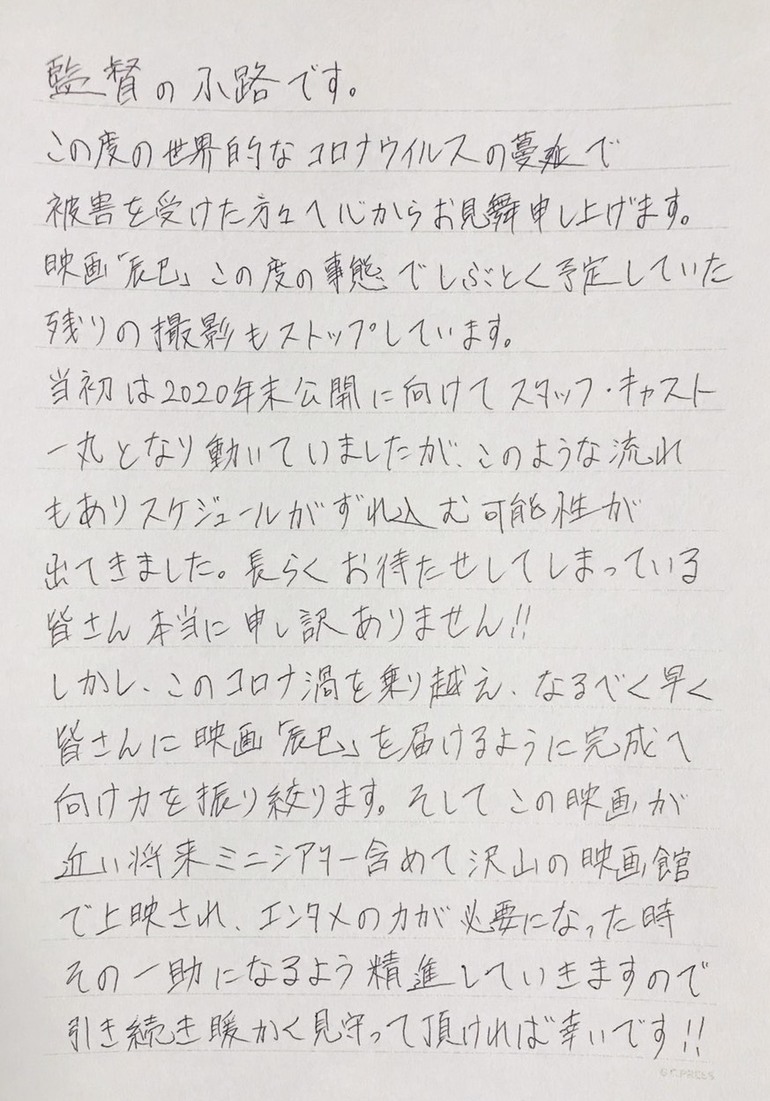 監督の小路です。
この度の世界的なコロナウイルスの蔓延で
被害を受けた方々へ心からお見舞申し上げます。
映画「辰巳」この度の事態でしぶとく予定していた
残りの撮影もストップしています。
当初は2020年末公開に向けてスタッフ・キャスト
一丸となり動いていましたが、このような流れ
もありスケジュールがずれ込む可能性が
出てきました。長らくお待たせしてしまっている
皆さん本当に申し訳ありません!!
しかし、このコロナ渦を乗り越え、なるべく早く
皆さんに映画「辰巳」を届けるように完成へ
向け力を振り絞ります。そしてこの映画が
近い将来ミニシアター含めて沢山の映画館
で上映され、エンタメの力が必要になった時
その一助になるよう精進していきますので
引き続き暖かく見守って頂ければ幸いです!!